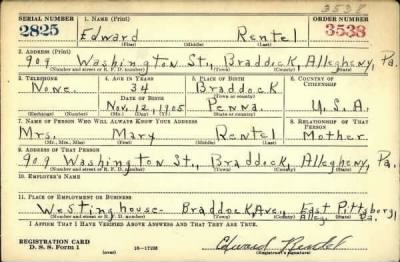 3538
SERIAL NUMBER 1. NAME (Print) ORDER NUMBER
2825 Edward Rentel 3538
(First) (Middle) (Last)
2. ADDRESS (Print)
909 Washington St., Braddock, Allegheny, Pa.
(Number and street or R. F. D. number) (Town) (County) (State)
3. TELEPHONE 4. AGE IN YEARS 5. PLACE OF BIRTH 6. COUNTRY OF CITIZENSHIP
None. 34 Braddock
DATE OF BIRTH (Town or county)
Nov. 12, 1905 Penna. U.S.A.
(Exchange) (Number) (Mo.) (Day) (Yr.) (State or country)
7. NAME OF PERSON WHO WILL ALWAYS KNOW YOUR ADDRESS 8. RELATIONSHIP OF THAT PERSON
Mrs. Mary Rentel Mother.
(Mr., Mrs., Miss) (First) (Middle) (Last)
9. ADDRESS OF THAT PERSON
909 Washington St., Braddock, Allegheny, Pa.
(Number and street or R. F. D. number) (Town) (County) (State)
10. EMPLOYER'S NAME
11. PLACE OF EMPLOYMENT OR BUSINESS
Westinghouse - Braddock Ave., East Pittsburg, Alleg. Pa.
(Number and street or R. F. D. number) (Town) (County) (State)
I AFFIRM THAT I HAVE VERIFIED ABOVE ANSWERS AND THAT THEY ARE TRUE.
REGISTRATION CARD
D. S. S. Form 1 16—17105 Edward Rentel
(Registrant's signature)